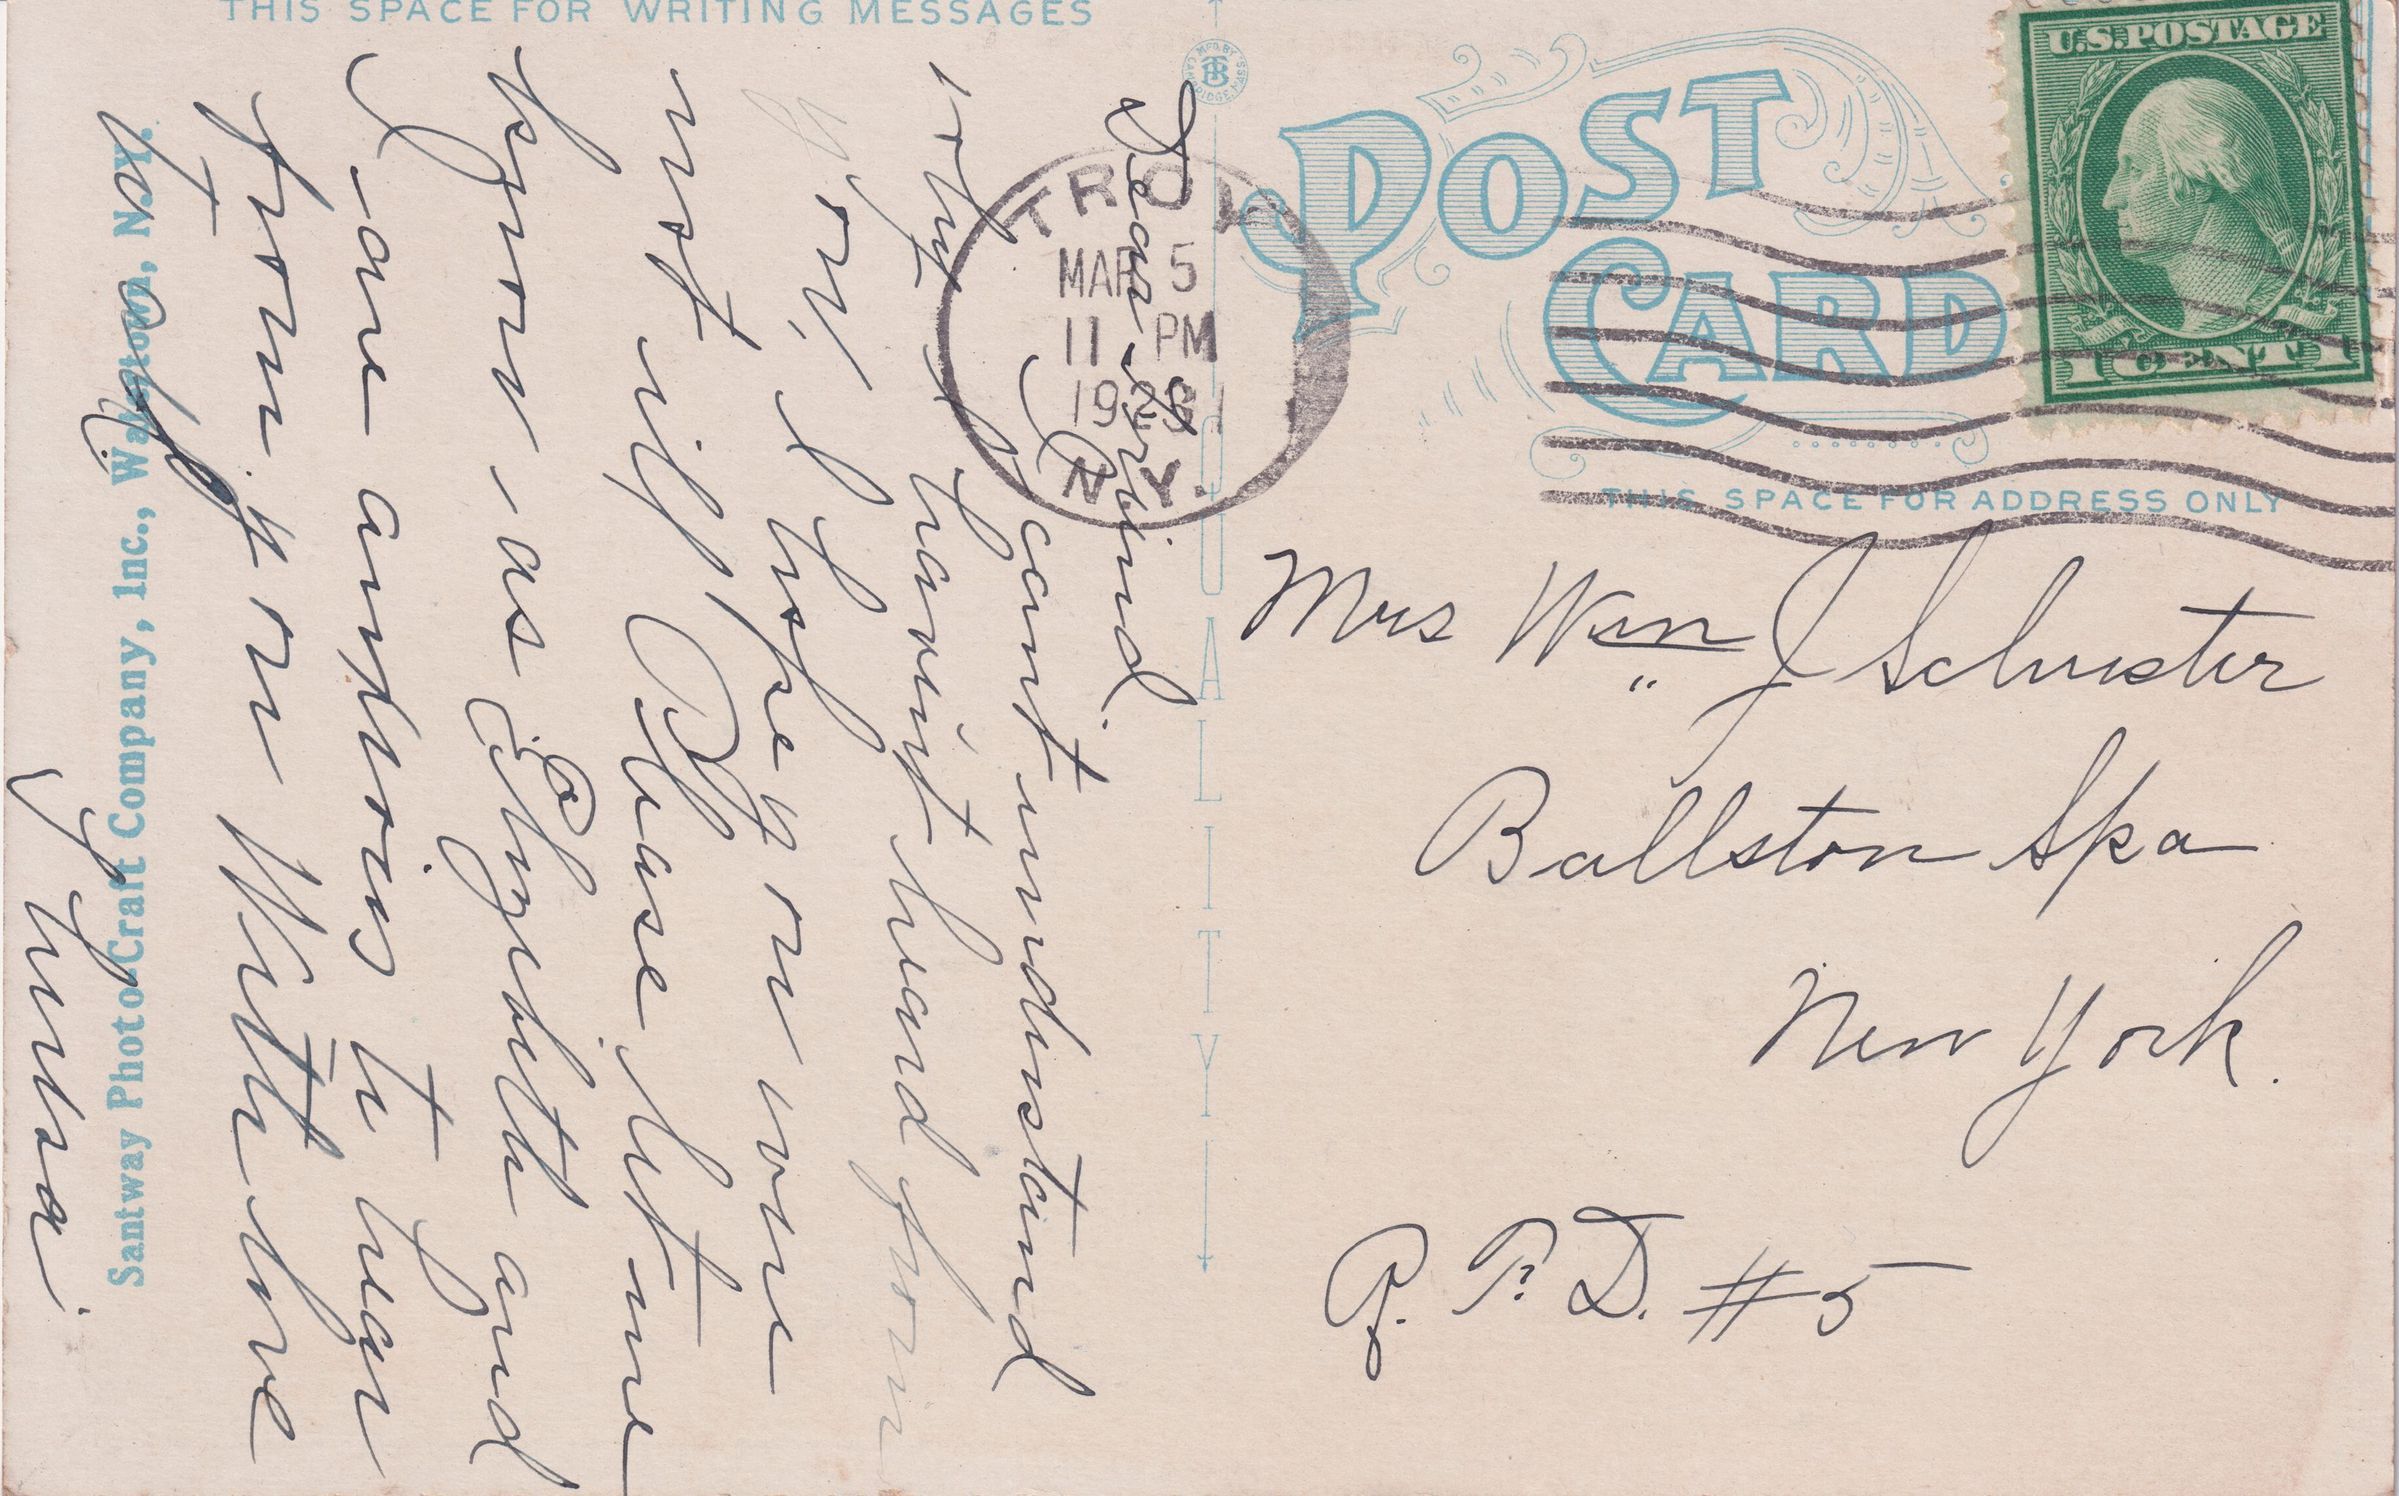 THIS SPACE FOR WRITING MESSAGES
Dear Friend.
I cant understand
why I havint heard from
you I hope you were
not ill, Please let me
know as Elizabeth and
I are anxious to hear
from you With love
to all
Santway Photo-Craft Company, Inc., Watertown, N.Y.
TROY
MAR 5
11 PM
N.Y.
MFD. BY
QUALITY
POST
CARD
U.S. POSTAGE
1 CENT 1
THIS SPACE FOR ADDRESS ONLY
Mrs Wm J Schuster
Ballston Spa
New York.
R. F. D. #5